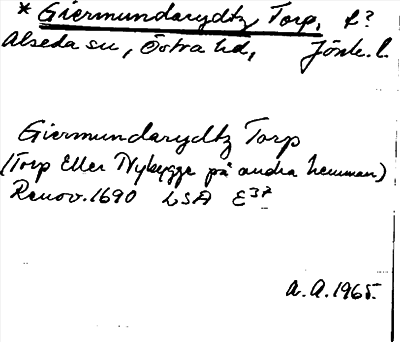 * Giermundarydtz Torp. f?
Alseda sn, Östra hd, Jönk. l.
Giermundarydtz Torp
(Torp Eller Nybygge på andra hemman)
Renov. 1690 LSA E 37
A. A. 1965.